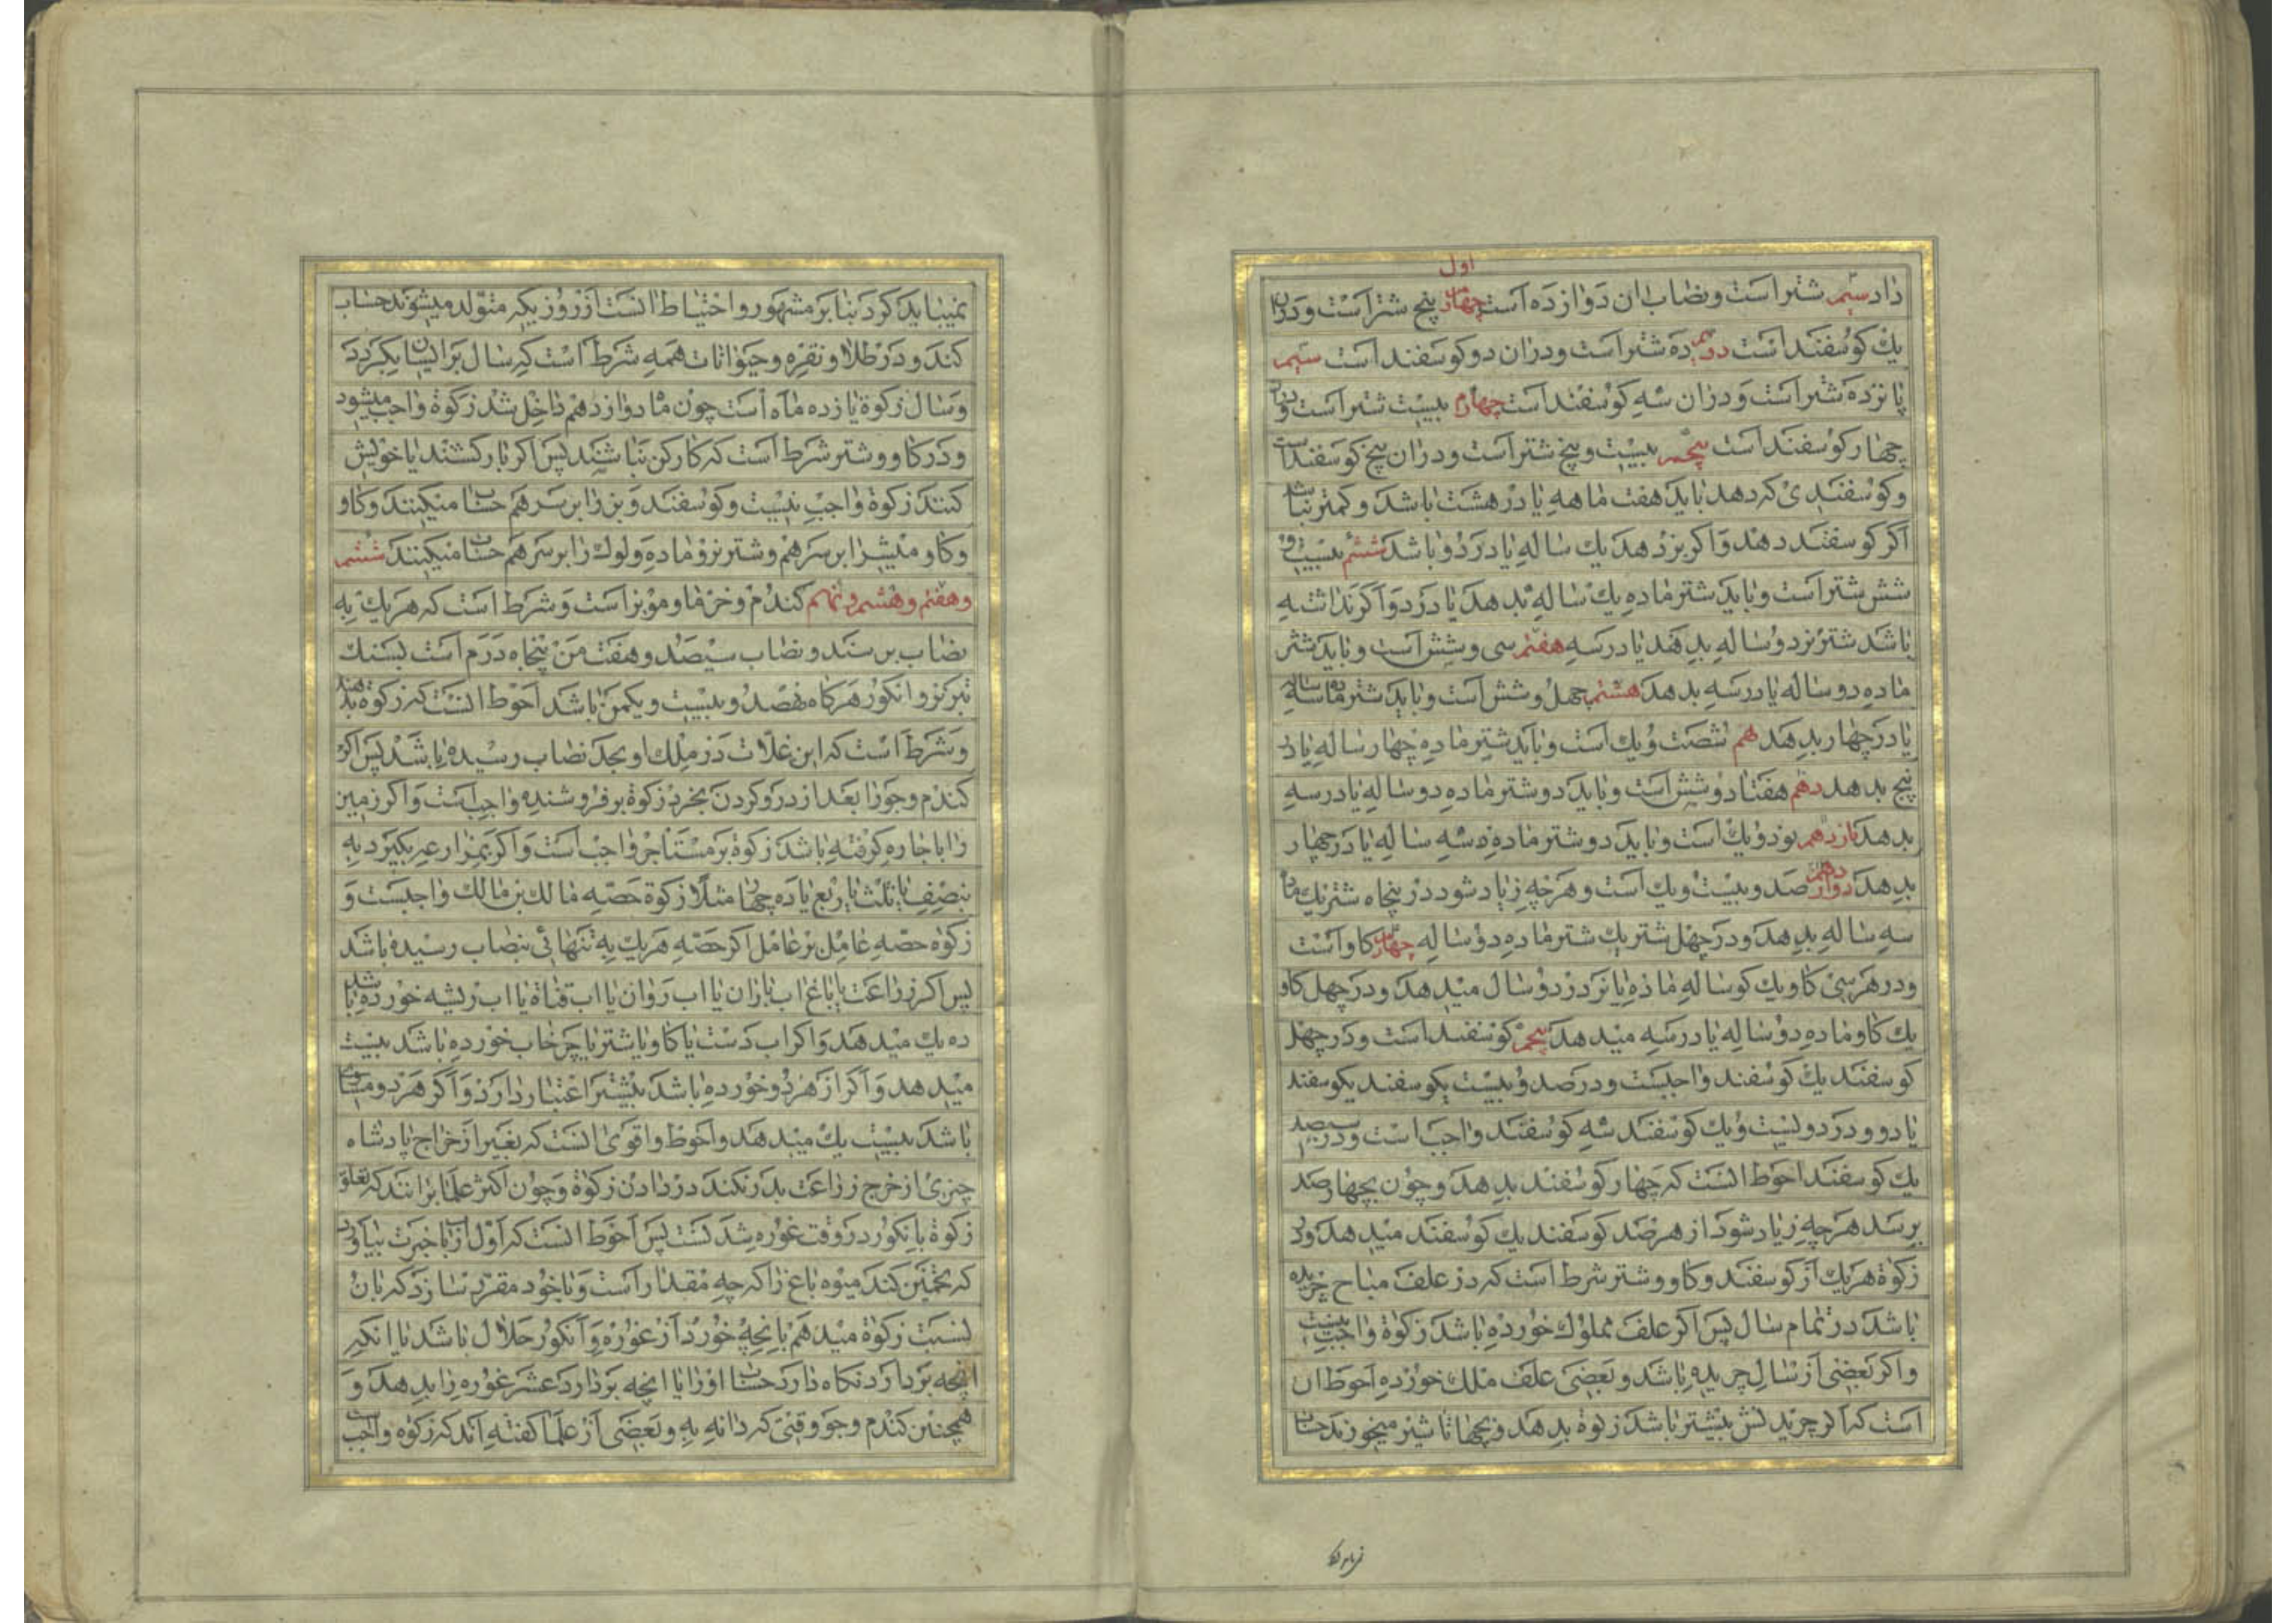 اول
داد سیم شتر است و نصاب ان دوازده است پنج شتر است و دران
یك كوسفند است دویم ده شتر است و دران دو كوسفند است سیم
پانزده شتر است و دران سه كوسفند است چهارم بیست شتر است و دران
چهار كوسفند است پنجم بیست و پنج شتر است و دران پنج كوسفند است
و كوسفندی كه دهد باید هفت ماهه پا در هشت باشد و كمتر نباشد
اكر كوسفند دهد و اكر بز دهد یك ساله پا در دو باشد ششم بیست و
شش شتر است و باید شتر ماده یك ساله بدهد پا در دو و اكر نداشته
باشد شتر نر دو ساله بدهد پا در سه هفتم سی و شش است و باید شتر
ماده دو ساله پا در سه بدهد هشتم چهل و شش است و باید شتر ماده سه ساله
پا در چهار بدهد نهم شصت و یك است و باید شتر ماده چهار ساله پا در
پنج بدهد دهم هفتاد و شش است و باید دو شتر ماده دو ساله پا در سه
بدهد یازدهم نود و یك است و باید دو شتر ماده سه ساله پا در چهار
بدهد دوازدهم صد و بیست و یك است و هر چه زیاد شود در پنجاه شتر یك ماده
سه ساله بدهد و در چهل شتر یك شتر ماده دو ساله چهارم كاو است
و در هر سی كاو یك كوساله ماده یا نر در دو سال میدهد و در چهل كاو
یك كاو ماده دو ساله پا در سه میدهد پنجم كوسفند است و در چهل
كوسفند یك كوسفند واجبست و در صد و بیست یكوسفند یكوسفند
یا دو و در دویست و یك كوسفند سه كوسفند واجب است و در سیصد
یك كوسفند احوط انست كه چهار كوسفند بدهد و چون بچهار صد
برسد هر چه زیاد شود از هر صد كوسفند یك كوسفند میدهد و در
زكوة هر یك از كوسفند و كاو و شتر شرط است كه در علف مباح چریده
باشد در تمام سال پس اكر علف مملوك خورده باشد زكوة واجب نیست
و اكر بعضی از سال چریده باشد و بعضی علف ملك خورده احوط ان
است كه اكر چریدنش بیشتر باشد زكوة بدهد و بچها تا شیر میخورند حساب
نمیباید كرد بنا بر مشهور و احتیاط انست از روزیكه متولد میشوند حساب
كند و در طلا و نقره و حیوانات همه شرط است كه سال بر ایشان بكردد
و سال زكوة یازده ماه است چون ماه دوازدهم داخل شد زكوة واجب میشود
و در كاو و شتر شرط است كه كاركن نباشند پس اكر بار كشند یا خویش
كنند زكوة واجب نیست و كوسفند و بز را بر سر هم حساب میكنند و كاو
و كاومیش را بر سر هم و شتر نر و ماده و لوك را بر سر هم حساب میكنند ششم
و هفتم و هشتم و نهم كندم و خرما و مویز است و شرط است كه هر یك به
نصاب برسند و نصاب سیصد و هفت من پنجاه درم است بسنك
تبریز و انكور هركاه نهصد و بیست و یكمن باشد احوط انست كه زكوة بدهند
و شرط است كه این غلات در ملك او بحد نصاب رسیده باشد پس اكر
كندم و جو را بعد از درو كردن بخرد زكوة بر فروشنده واجب است و اكر زمین
را باجاره كرفته باشد زكوة بر مستاجر واجب است و اكر بمزارعه بكیرد به
بنصف یا ثلث یا ربع یا ده چهار مثلا زكوة حصه مالك بر مالك واجبست و
زكوة حصه عامل بر عامل اكر حصه هر یك به تنهائی بنصاب رسیده باشد
پس اكر زراعت یا باغ اب باران یا اب روان یا اب قناة یا اب ریشه خورده باشد
ده یك میدهد و اكر اب دست یا كاو یا شتر یا چرخاب خورده باشد بیست
میدهد و اكر از هر دو خورده باشد بیشتر اعتبار دارد و اكر هر دو مساوی
باشد بیست یك میدهد و احوط و اقوی انست كه بغیر از خراج پادشاه
چیزی از خرج زراعت بدر نكند در دادن زكوة و چون اكثر علما برانند كه تعلق
زكوة بانكور در وقت غوره شدنست پس احوط انست كه اول ارباب خبرت بیاورد
كه تخمین كند میوه باغ را كه چه مقدار است و با خود مقرر سازد كه بان
نسبت زكوة میدهم بانچه خورد از غوره و انكور حلال باشد یا انكه
انچه بردارد نكاه دارد حساب او را یا انچه بردارد عشر غوره را بدهد و
همچنین كندم و جو وقتی كه دانه به و بعضی از علما كفته اند كه زكوة واجب است